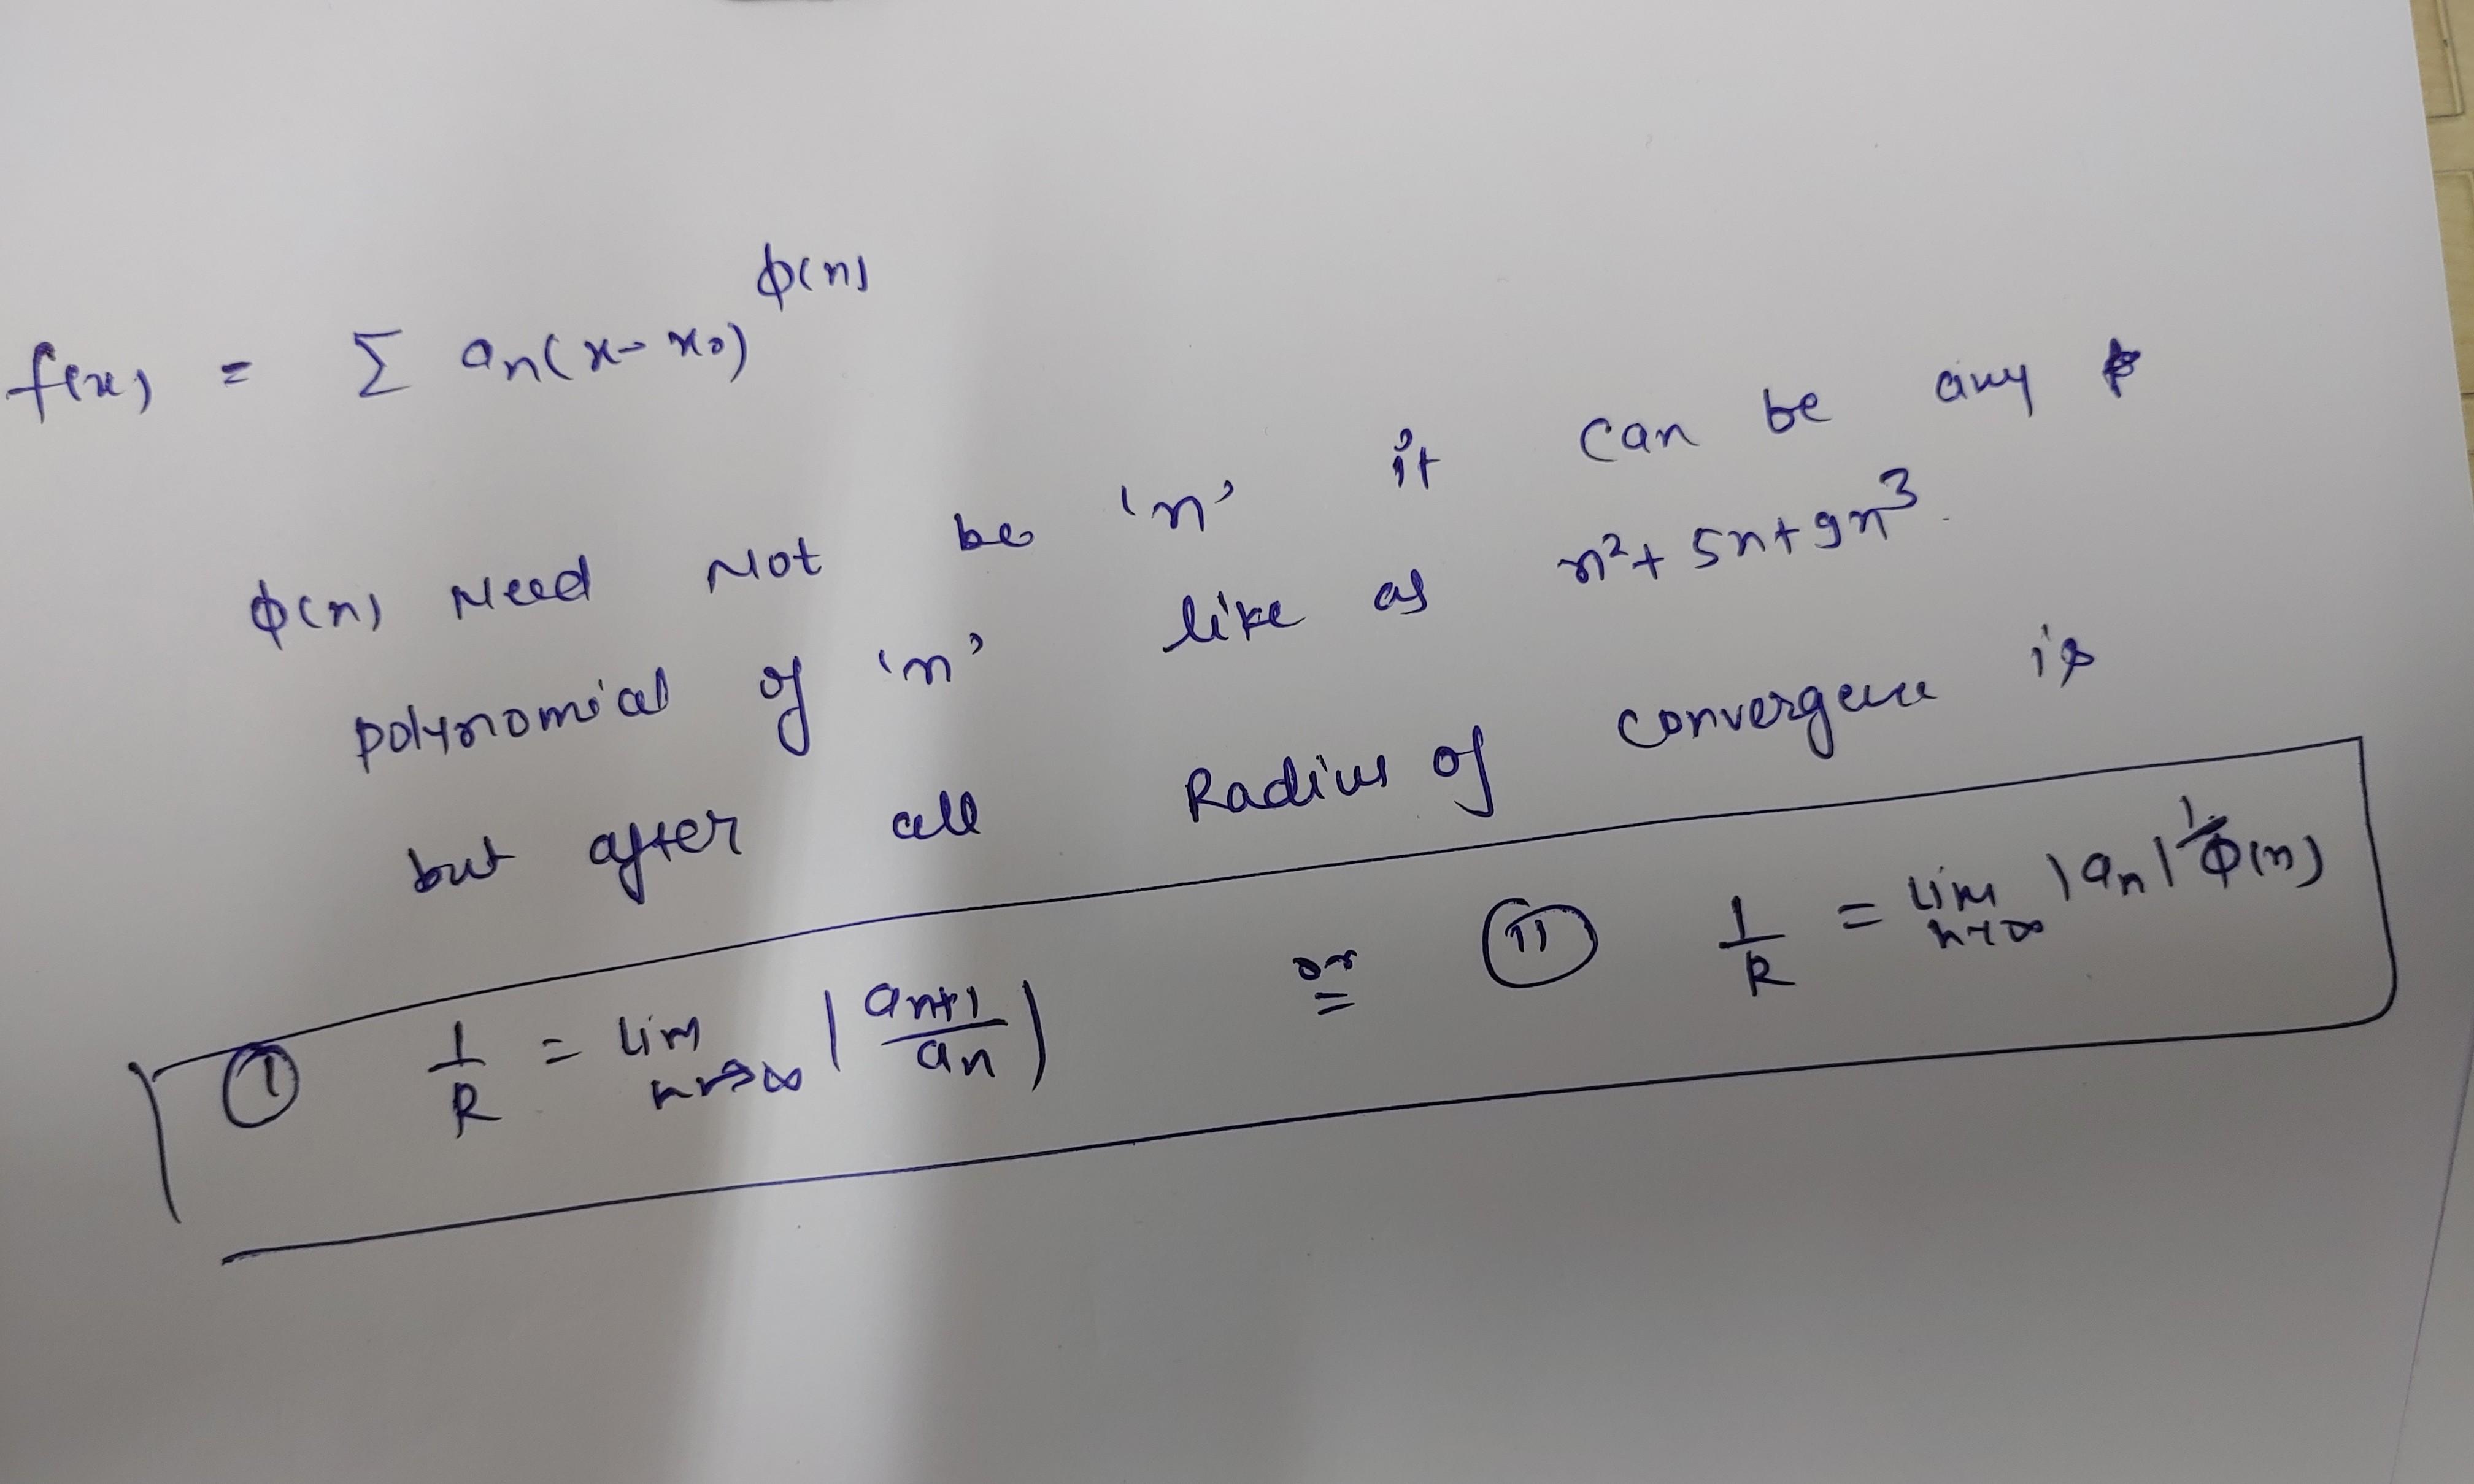 f(x) = Σ an(x-x0)^ϕ(n)
ϕ(n) Need Not be 'n' it can be any
polynomial of 'n' like as n²+5n+9n³.
but after all Radius of convergence is
① 1/R = lim n→∞ |an+1/an| or ⑪ 1/R = lim n→∞ |an|^1/ϕ(n)